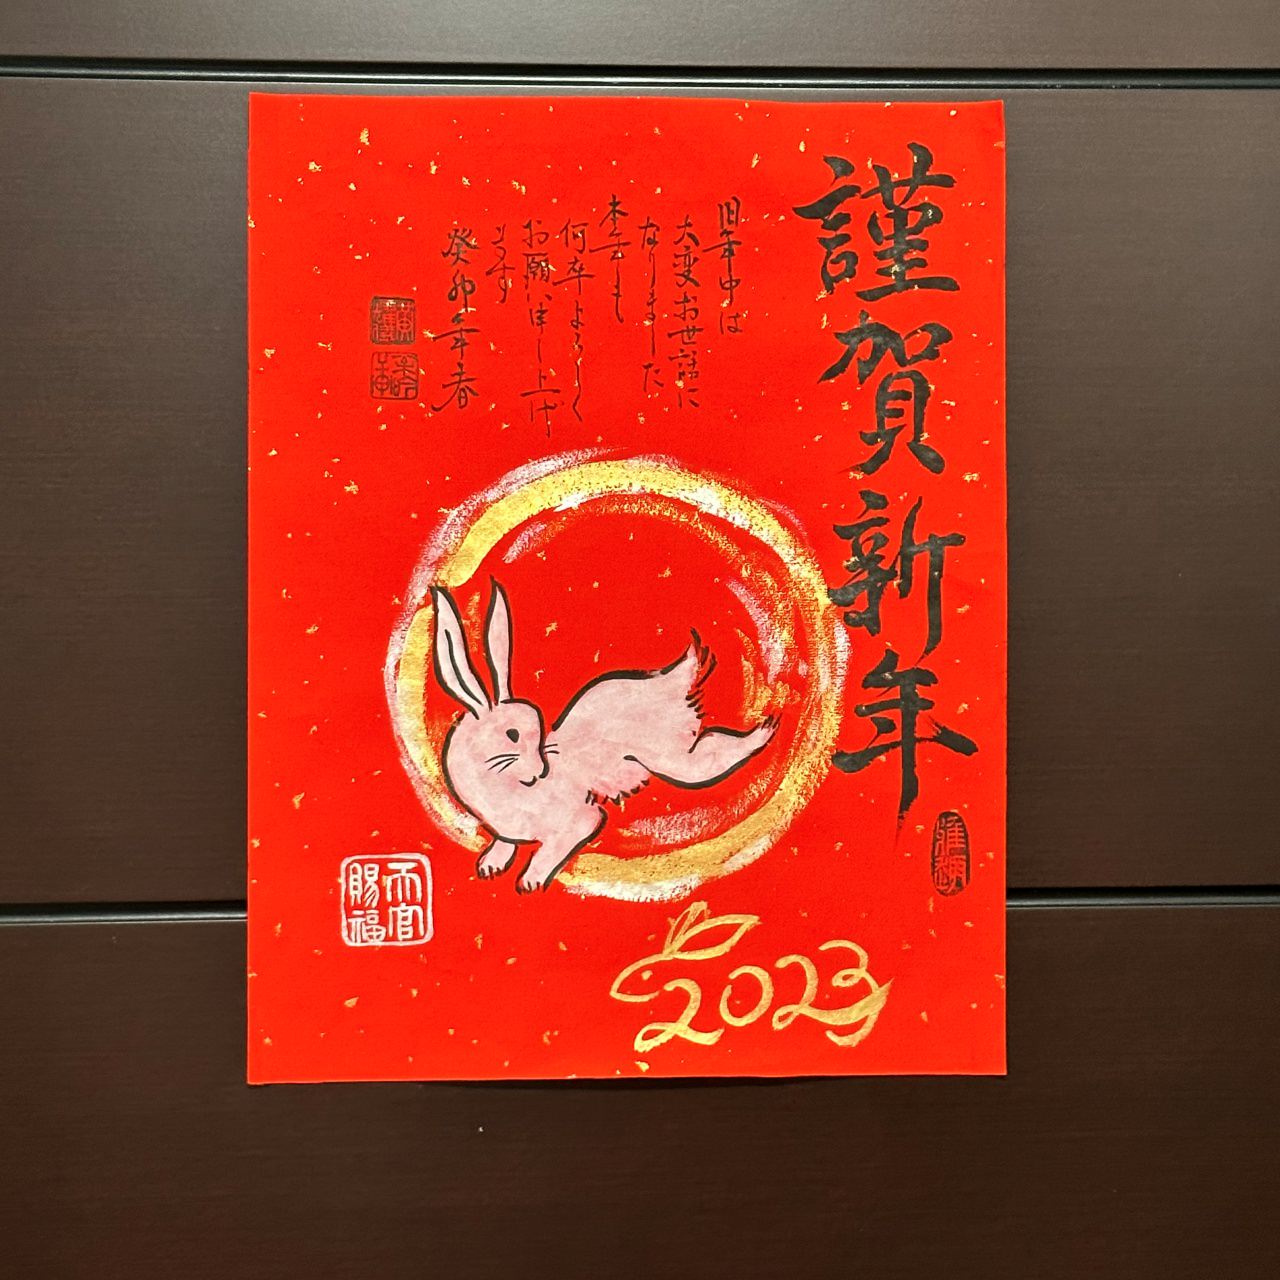 謹賀新年
旧年中は
大変お世話に
なりました
本年も
何卒よろしく
お願い申し上げ
ます
癸卯年春
天官
賜福
2023